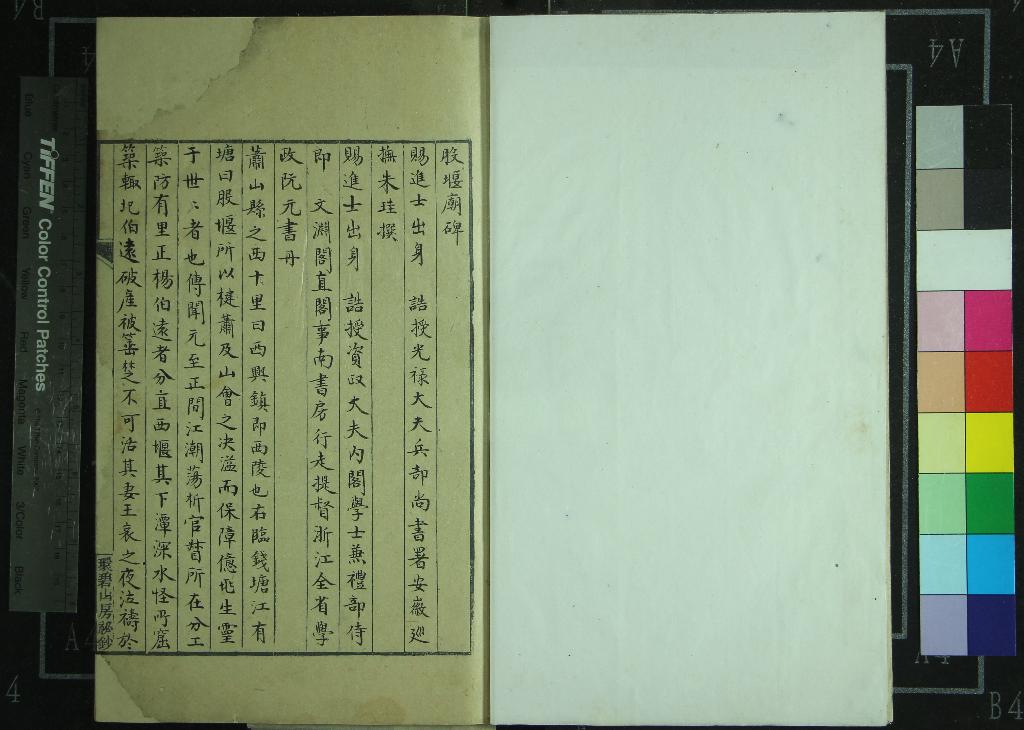 股堰廟碑
賜進士出身　誥授光祿大夫兵部尚書署安徽巡
撫朱珪撰
賜進士出身　誥授資政大夫內閣學士兼禮部侍
郎　文淵閣直閣事南書房行走提督浙江全省學
政阮元書丹
蕭山縣之西十里曰西興鎮即西陵也右臨錢塘江有
塘曰股堰所以楗蕭及山會之決溢而保障億兆生靈
于世〻者也傳聞元至正間江潮蕩析官督所在分工
築防有里正楊伯遠者分直西堰其下潭深水怪所窟
築輒圮伯遠破產被箠楚不可活其妻王哀之夜泣禱於
聚碧山房祕鈔
TIFFEN Color Control Patches
Blue
Cyan
Green
Yellow
Red
Magenta
White
3/Color
Black
A4
A4
A4
B4
4